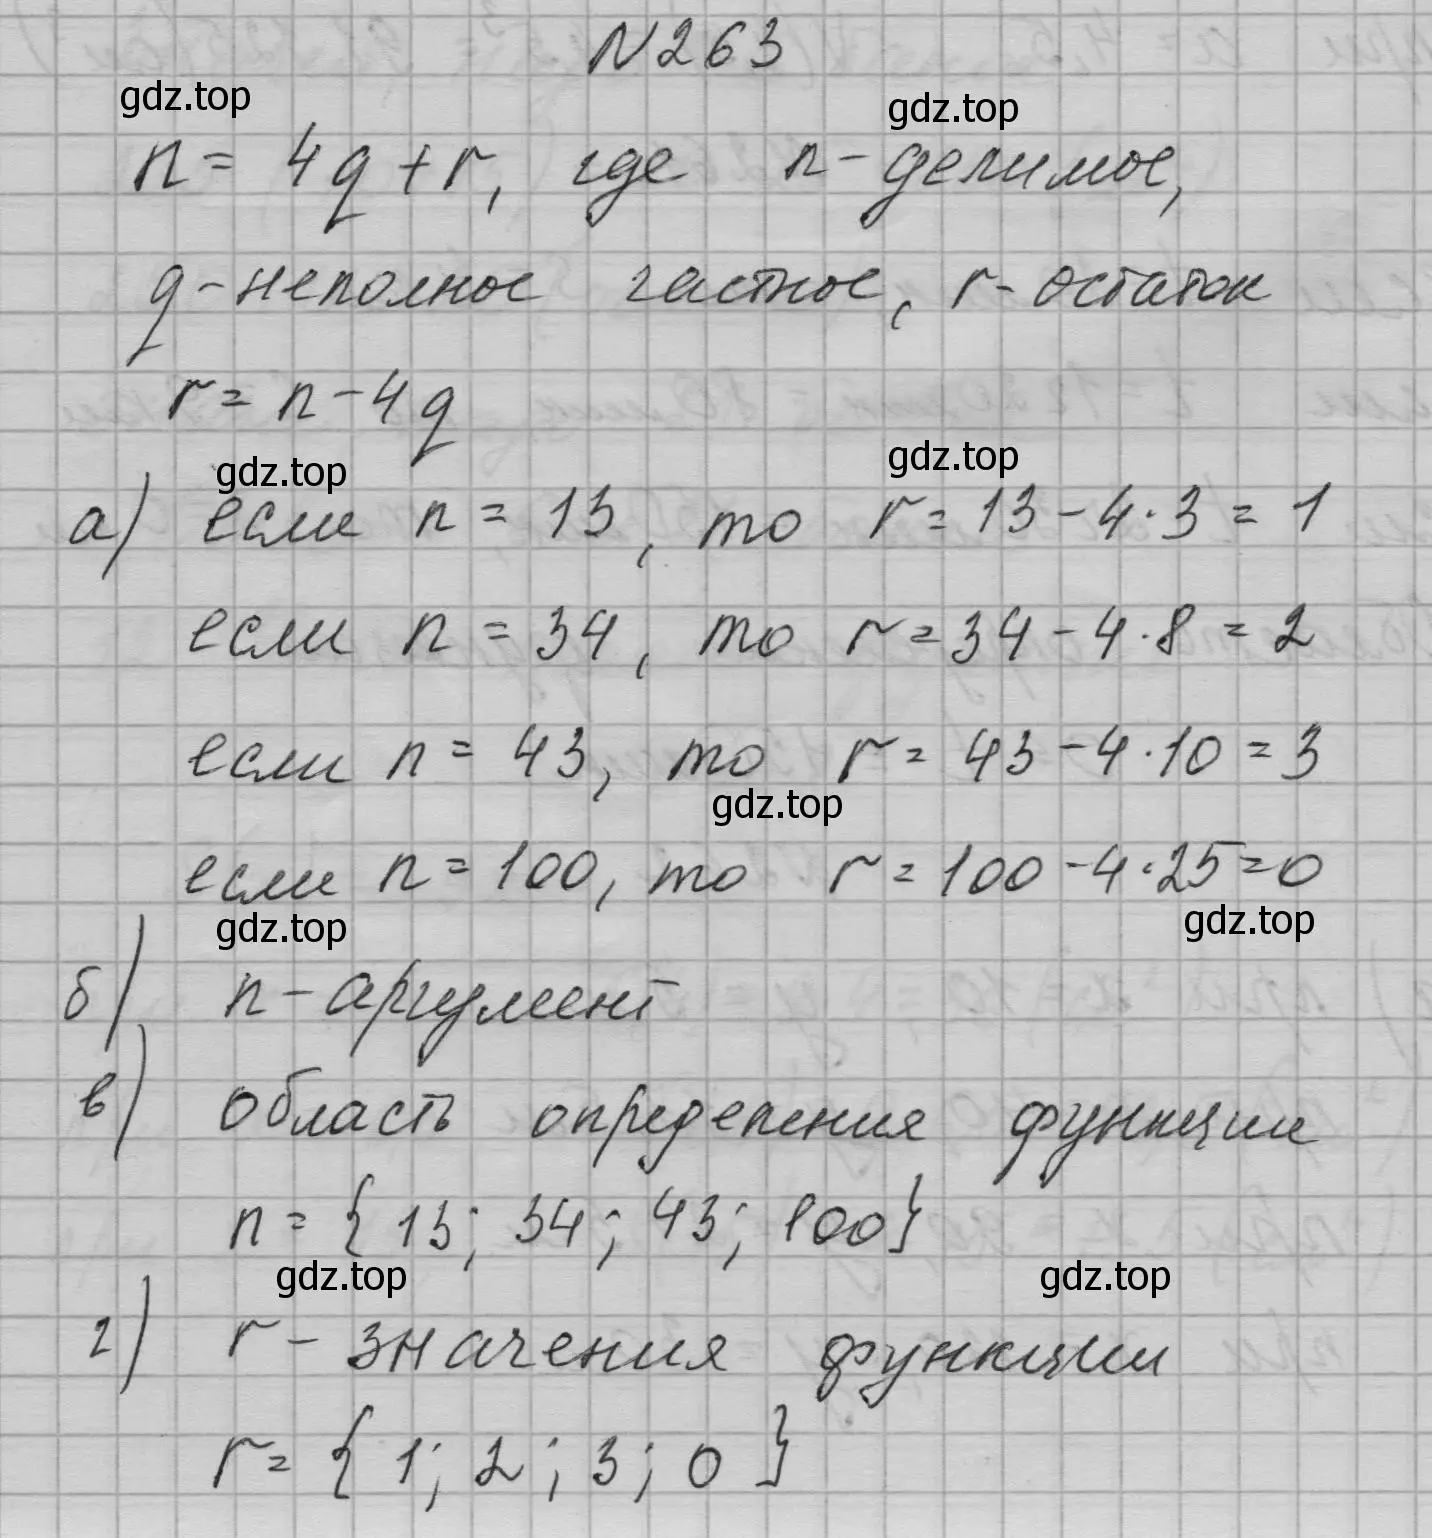 N263
gdz.top gdz.top
n = 4q + r, где n - делимое,
q - неполное частное, r - остаток
r = n - 4q
gdz.top gdz.top
а) если n = 13, то r = 13 - 4 · 3 = 1
если n = 34, то r = 34 - 4 · 8 = 2
если n = 43, то r = 43 - 4 · 10 = 3
gdz.top
если n = 100, то r = 100 - 4 · 25 = 0
gdz.top gdz.top
б) n - аргумент
в) область определения функции
n = {13; 34; 43; 100}
gdz.top gdz.top
г) r - значения функции
r = {1; 2; 3; 0}